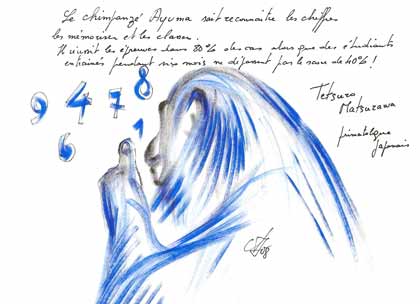 Le chimpanzé Ayuma sait reconnaître les chiffres
les mémoriser et les classer.
Il réussit les épreuves dans 80% des cas alors que des étudiants
entraînés pendant six mois ne dépassent pas le seuil de 40% !
8
9 4 7
6 1
Tetsuro
Matsuzawa
primatologue
Japonais